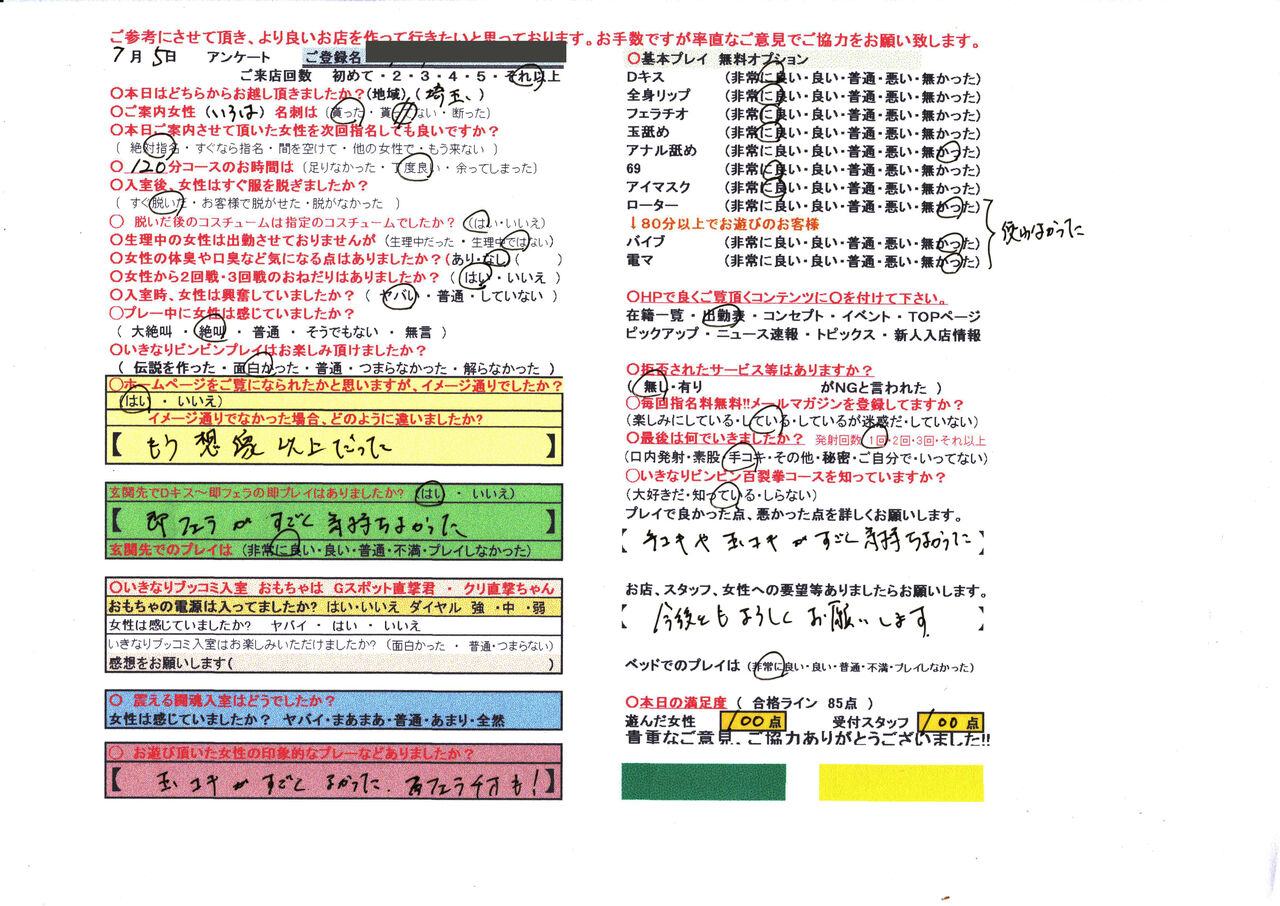 ご参考にさせて頂き、より良いお店を作って行きたいと思っております。お手数ですが率直なご意見でご協力をお願い致します。
7月5日 アンケート ご登録名
ご来店回数 初めて・2・3・4・5・それ以上
〇本日はどちらからお越し頂きましたか?(地域)(埼玉)
〇ご案内女性(いろは)名刺は(貰った・貰ってない・断った)
〇本日ご案内させて頂いた女性を次回指名しても良いですか?
(絶対指名・すぐなら指名・間を空けて・他の女性で・もう来ない)
〇120分コースのお時間は(足りなかった・丁度良い・余ってしまった)
〇入室後、女性はすぐ服を脱ぎましたか?
(すぐ脱いだ・お客様で脱がせた・脱がなかった)
〇脱いだ後のコスチュームは指定のコスチュームでしたか?(はい・いいえ)
〇生理中の女性は出勤させておりませんが(生理中だった・生理中ではない)
〇女性の体臭や口臭など気になる点はありましたか?(あり・なし)( )
〇女性から2回戦・3回戦のおねだりはありましたか?(はい・いいえ)
〇入室時、女性は興奮していましたか?(ヤバい・普通・していない)
〇プレー中に女性は感じていましたか?
(大絶叫・絶叫・普通・そうでもない・無言)
〇いきなりビンビンプレイはお楽しみ頂けましたか?
(伝説を作った・面白かった・普通・つまらなかった・解らなかった)
〇ホームページをご覧になられたかと思いますが、イメージ通りでしたか?
(はい・いいえ)
イメージ通りでなかった場合、どのように違いましたか?
【もう想像以上だった】
玄関先でDキス～即フェラの即プレイはありましたか?(はい・いいえ)
【即フェラがすごく気持ちよかった】
玄関先でのプレイは(非常に良い・良い・普通・不満・プレイしなかった)
〇いきなりブッコミ入室 おもちゃは Gスポット直撃君・クリ直撃ちゃん
おもちゃの電源は入ってましたか?はい・いいえ ダイヤル 強・中・弱
女性は感じていましたか? ヤバイ・はい・いいえ
いきなりブッコミ入室はお楽しみいただけましたか?(面白かった・普通・つまらない)
感想をお願いします( )
〇震える闘魂入室はどうでしたか?
女性は感じていましたか? ヤバイ・まあまあ・普通・あまり・全然
〇お遊び頂いた女性の印象的なプレーなどありましたか?
【玉コキがすごくよかった. フェラチオも!】
〇基本プレイ 無料オプション
Dキス (非常に良い・良い・普通・悪い・無かった)
全身リップ (非常に良い・良い・普通・悪い・無かった)
フェラチオ (非常に良い・良い・普通・悪い・無かった)
玉舐め (非常に良い・良い・普通・悪い・無かった)
アナル舐め (非常に良い・良い・普通・悪い・無かった)
69 (非常に良い・良い・普通・悪い・無かった)
アイマスク (非常に良い・良い・普通・悪い・無かった)
ローター (非常に良い・良い・普通・悪い・無かった)
↓80分以上でお遊びのお客様
使わなかった
バイブ (非常に良い・良い・普通・悪い・無かった)
電マ (非常に良い・良い・普通・悪い・無かった)
〇HPで良くご覧頂くコンテンツに〇を付けて下さい。
在籍一覧・出勤表・コンセプト・イベント・TOPページ
ピックアップ・ニュース速報・トピックス・新人入店情報
〇拒否されたサービス等はありますか?
(無し・有り がNGと言われた)
〇毎回指名料無料!!メールマガジンを登録してますか?
(楽しみにしている・している・しているが迷惑だ・していない)
〇最後は何でいきましたか? 発射回数 1回・2回・3回・それ以上
(口内発射・素股・手コキ・その他・秘密・ご自分で・いってない)
〇いきなりビンビン百裂拳コースを知っていますか?
(大好きだ・知っている・しらない)
プレイで良かった点、悪かった点を詳しくお願いします。
【手コキや玉コキがすごく気持ちよかった】
お店、スタッフ、女性への要望等ありましたらお願いします。
【今後ともよろしくお願いします】
ベッドでのプレイは(非常に良い・良い・普通・不満・プレイしなかった)
〇本日の満足度(合格ライン 85点)
遊んだ女性 100点 受付スタッフ 100点
貴重なご意見、ご協力ありがとうございました!!